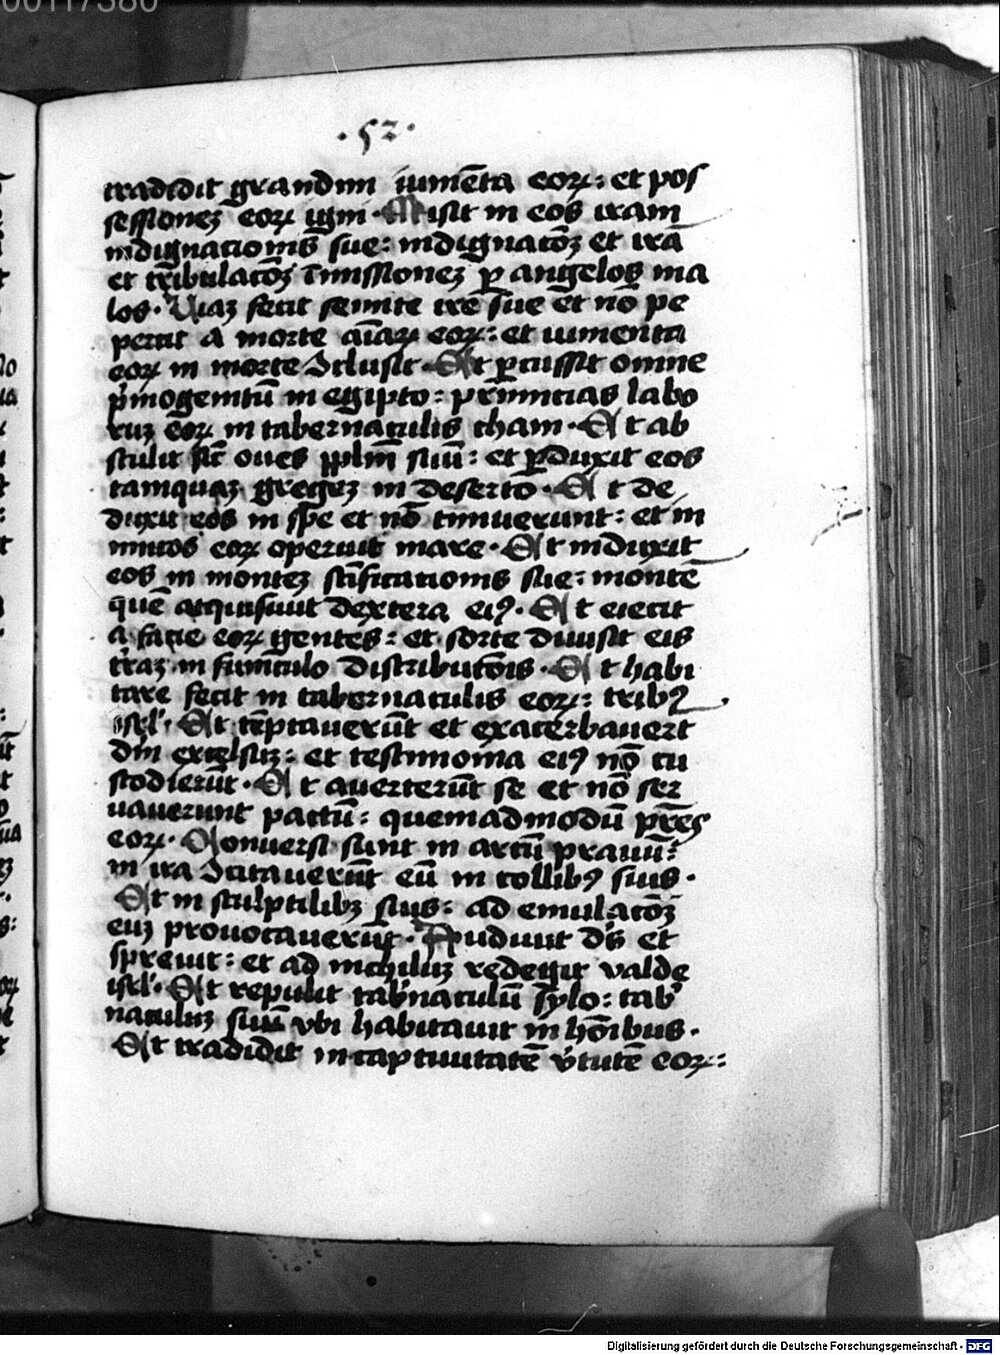 00117380
.52.
tradidit grandini iumēta eoꝝ: et pos
sessionez eoꝝ igni. Misit in eos iram
indignationis sue: indignatōz et irā
et tribulatōz īmissionez ꝑ angelos ma
los. Uiaz fecit semite ire sue et nō pe
percit a morte aīaꝝ eoꝝ: et iumenta
eoꝝ in morte ↄclusit. Et ꝑcussit omne
pͥmogenitū in egipto: primitias labo
ruz eoꝝ in tabernaculis cham. Et ab
stulit sic̄ oues pplm̄ suū: et ꝑduxit eos
tamquaz gregez in deserto. Et de
duxit eos in spe et nō timuerunt: et in
imicos eoꝝ operuit mare. Et induxit
eos in montez sc̄ificationis sue: montē
quē acquisiuit dextera eiꝰ. Et eiecit
a facie eoꝝ gentes: et sorte diuisit eis
tr̄az in funiculo distributōis. Et habi
tare fecit in tabernaculis eoꝝ: tribꝰ
isrl'. Et tēptauerūt et exacerbauerūt
dm̄ excelsuz: et testimonia eiꝰ nō cu
stodierūt. Et auerterūt se et nō ser
uauerunt pactū: quemadmodū pr̄es
eoꝝ. Conuersi sunt in arcū prauū:
in ira ↄcitauerūt eū in collibꝰ suis.
Et in sculptilibz suis: ad emulatōz
euz prouocauerūt. Audiuit ds̄ et
spreuit: et ad nichiluz redegit valde
isrl'. Et repulit tab'naculū sylo: tab'
naculuz suū vbi habitauit in hōibus.
Et tradidit in captiuitatē v'tutē eoꝝ:
Digitalisierung gefördert durch die Deutsche Forschungsgemeinschaft - DFG